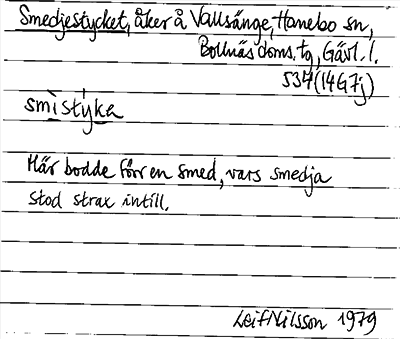 Smedjestycket, åker å Vallsänge, Hanebo sn,
Bollnäs doms. tg, Gävl. l.
537 (14G7j)
smìstýka
Här bodde förr en smed, vars smedja
stod strax intill.
Leif Nilsson 1979